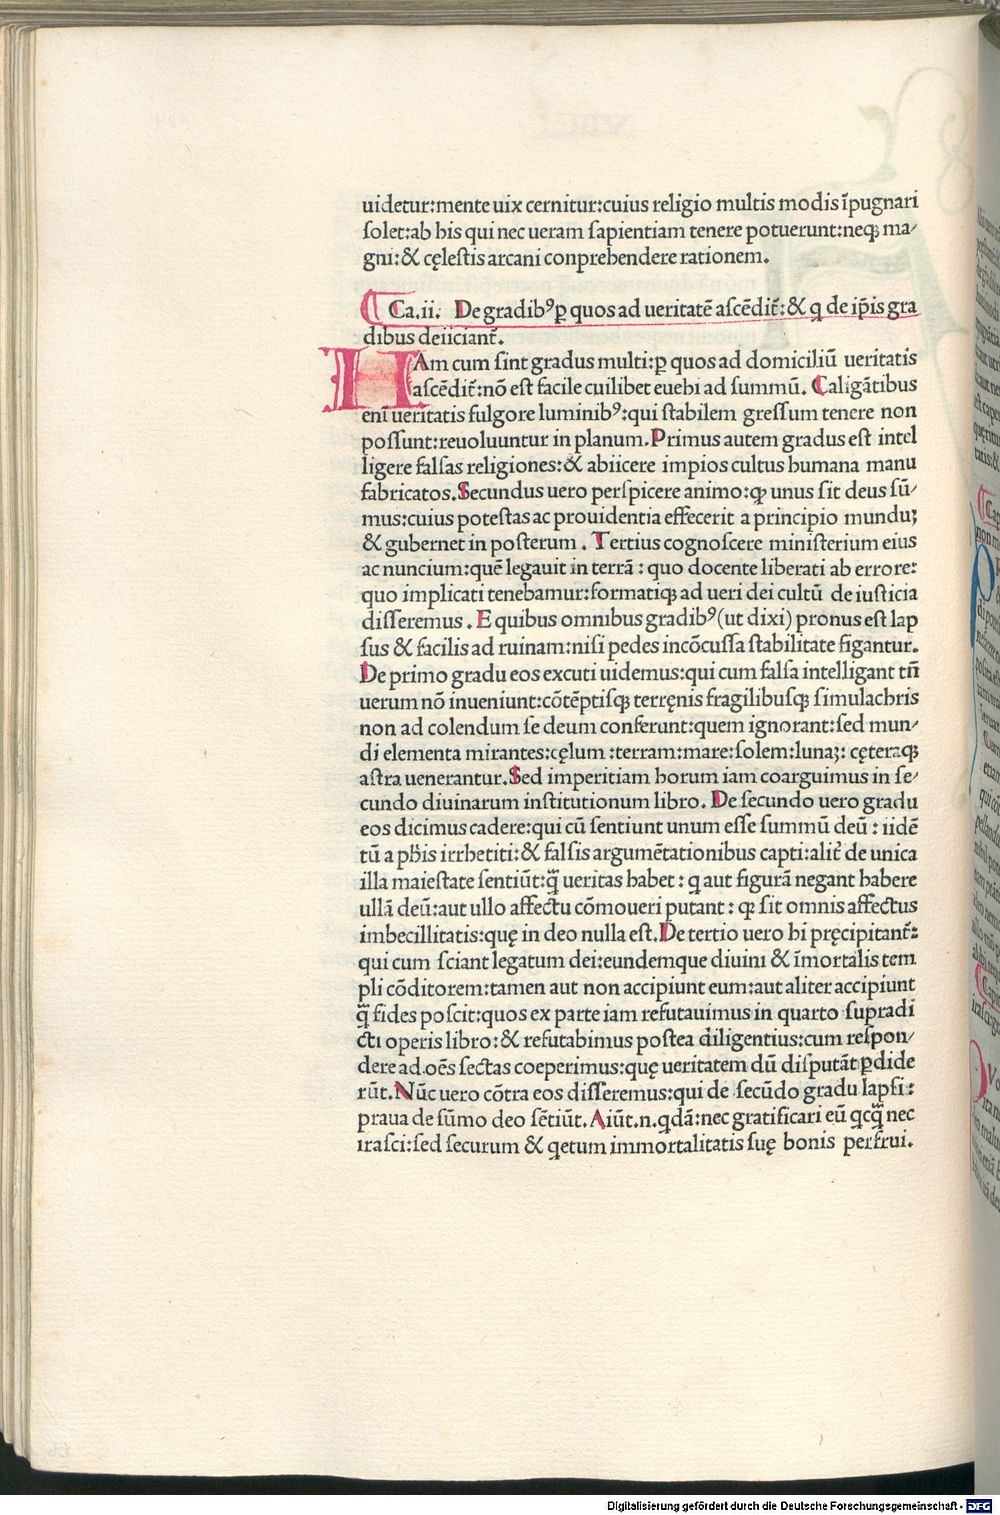 uidetur:mente uix cernitur:cuius religio multis modis īpugnari
ſolet:ab his qui nec ueram ſapientiam tenere potuerunt:neqꝫ ma⸗
gni:& cęleſtis arcani conprehendere rationem.
Ca.ii. De gradibꝰ ꝑ quos ad ueritatē aſcēdit̃:& q de ip̄is gra
dibus deiiciant̃.
NAm cum ſint gradus multi:ꝑ quos ad domiciliū ueritatis
aſcēdit̃:nō eſt facile cuilibet euehi ad ſummū. Caligātibus
eni ueritatis fulgore luminibꝰ:qui ſtabilem greſſum tenere non
poſſunt:reuoluuntur in planum.Primus autem gradus eſt intel
ligere falſas religiones:& abiicere impios cultus humana manu
fabricatos.Secundus uero perſpicere animo:ꝙ unus ſit deus ſū⸗
mus:cuius poteſtas ac prouidentia effecerit a principio munduꝫ
& gubernet in poſterum . Tertius cognoſcere miniſterium eius
ac nuncium:quē legauit in terrā : quo docente liberati ab errore:
quo implicati tenebamur:formatiqꝫ ad ueri dei cultū de iuſticia
diſſeremus . E quibus omnibus gradibꝰ(ut dixi) pronus eſt lap
ſus & facilis ad ruinam:niſi pedes incōcuſſa ſtabilitate figantur.
De primo gradu eos excuti uidemus:qui cum falſa intelligant tn̄
uerum nō inueniunt:cōtēptiſqꝫ terręnis fragilibuſqꝫ ſimulachris
non ad colendum ſe deum conferunt:quem ignorant:ſed mun⸗
di elementa mirantes:cęlum :terram:mare:ſolem:lunaꝫ: cęteraqꝫ
aſtra uenerantur.Sed imperitiam horum iam coarguimus in ſe⸗
cundo diuinarum inſtitutionum libro. De ſecundo uero gradu
eos dicimus cadere:qui cū ſentiunt unum eſſe ſummū deū : iidē
tū a ph̄is irrhetiti:& falſis argumētationibus capti:alit̃ de unica
illa maieſtate ſentiūt:q̄ ueritas habet : q aut figurā negant habere
ullā deū:aut ullo affectu cōmoueri putant : ꝙ ſit omnis affectus
imbecillitatis:quę in deo nulla eſt.De tertio uero hi pręcipitant̃:
qui cum ſciant legatum dei:eundemque diuini & īmortalis tem
pli cōditorem:tamen aut non accipiunt eum:aut aliter accipiunt
q̄ fides poſcit:quos ex parte iam refutauimus in quarto ſupradi
cti operis libro:& refutabimus poſtea diligentius:cum reſpon⸗
dere ad.oēs ſectas coeperimus:quę ueritatem dū diſputāt ꝑdide
rūt.Nūc uero cōtra eos diſſeremus:qui de ſecūdo gradu lapſi:
praua de ſūmo deo ſētiūt.Aiūt.n.qdā:nec gratificari eū qcq̄ nec
iraſci:ſed ſecurum & qetum immortalitatis ſuę bonis perfrui.
Digitalisierung gefördert durch die Deutsche Forschungsgemeinschaft - DFG